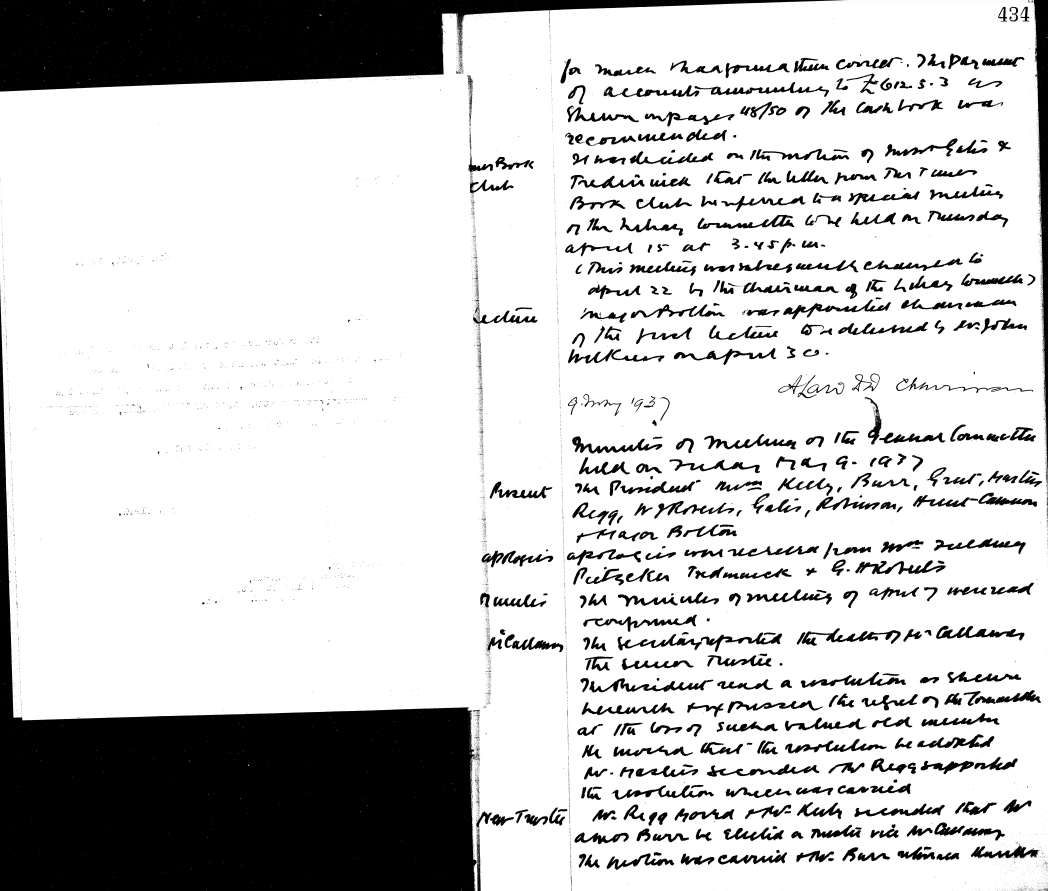 434
for March & had found them correct. The Payment
of accounts amounting to £612.5.3 as
Shewn on pages 48/50 of the Cash book was
recommended.
Book It was decided on the motion of Gates &
Club Tredinnick that the letter from The Times
Book Club be referred to a special meeting
of the Library Committee to be held on Thursday
April 15 at 3.45 p.m.
(This meeting was subsequently changed to
April 22 by the Chairman of the Library Committee)
Lecture Major Bolton was appointed chairman
of the first lecture to be delivered by Dr. John
Wilkins on April 30.
Chairman
9 May 1937
Minutes of Meeting of the General Committee
held on Friday May 9. 1937
Present The President Kelly, Burr, Grut, Masters
Regg, W J Roberts, Gates, Robinson,
& Major Bolton
Apologies Apologies were received from
Pietzcker Tredinnick & G. H Roberts
Minutes The Minutes of meeting of April 7 were read
& confirmed.
Mr Callaway The Secretary reported the death of Mr Callaway
The Senior Trustee.
The President read a resolution as Shewn
herewith & expressed the regret of the Committee
at the loss of such a valued old member
He moved that the resolution be adopted
Mr. Masters seconded & Mr Regg supported
the resolution which was carried
New Trustee Mr. Regg moved & Mr. Kelly seconded that Mr
Amos Burr be Elected a Trustee vice Mr Callaway
The motion was carried & Mr. Burr returned thanks